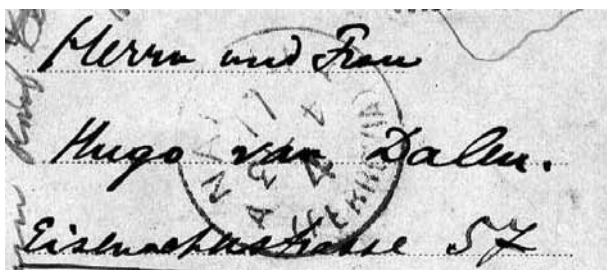 Herrn und Frau
Hugo van Dalen.
Eisenacherstrasse 57